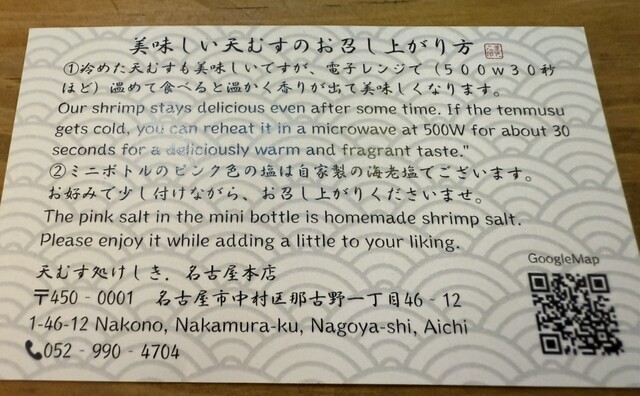 美味しい天むすのお召し上がり方
①冷めた天むすも美味しいですが、電子レンジで（５００ｗ３０秒
ほど）温めて食べると温かく香りが出て美味しくなります。
Our shrimp stays delicious even after some time. If the tenmusu
gets cold, you can reheat it in a microwave at 500W for about 30
seconds for a deliciously warm and fragrant taste."
②ミニボトルのピンク色の塩は自家製の海老塩でございます。
お好みで少し付けながら、お召し上がりくださいませ。
The pink salt in the mini bottle is homemade shrimp salt.
Please enjoy it while adding a little to your liking.
GoogleMap
天むす処けしき．名古屋本店
〒450‐0001　名古屋市中村区那古野一丁目46‐12
1-46-12 Nakono, Nakamura-ku, Nagoya-shi, Aichi
052‐990‐4704